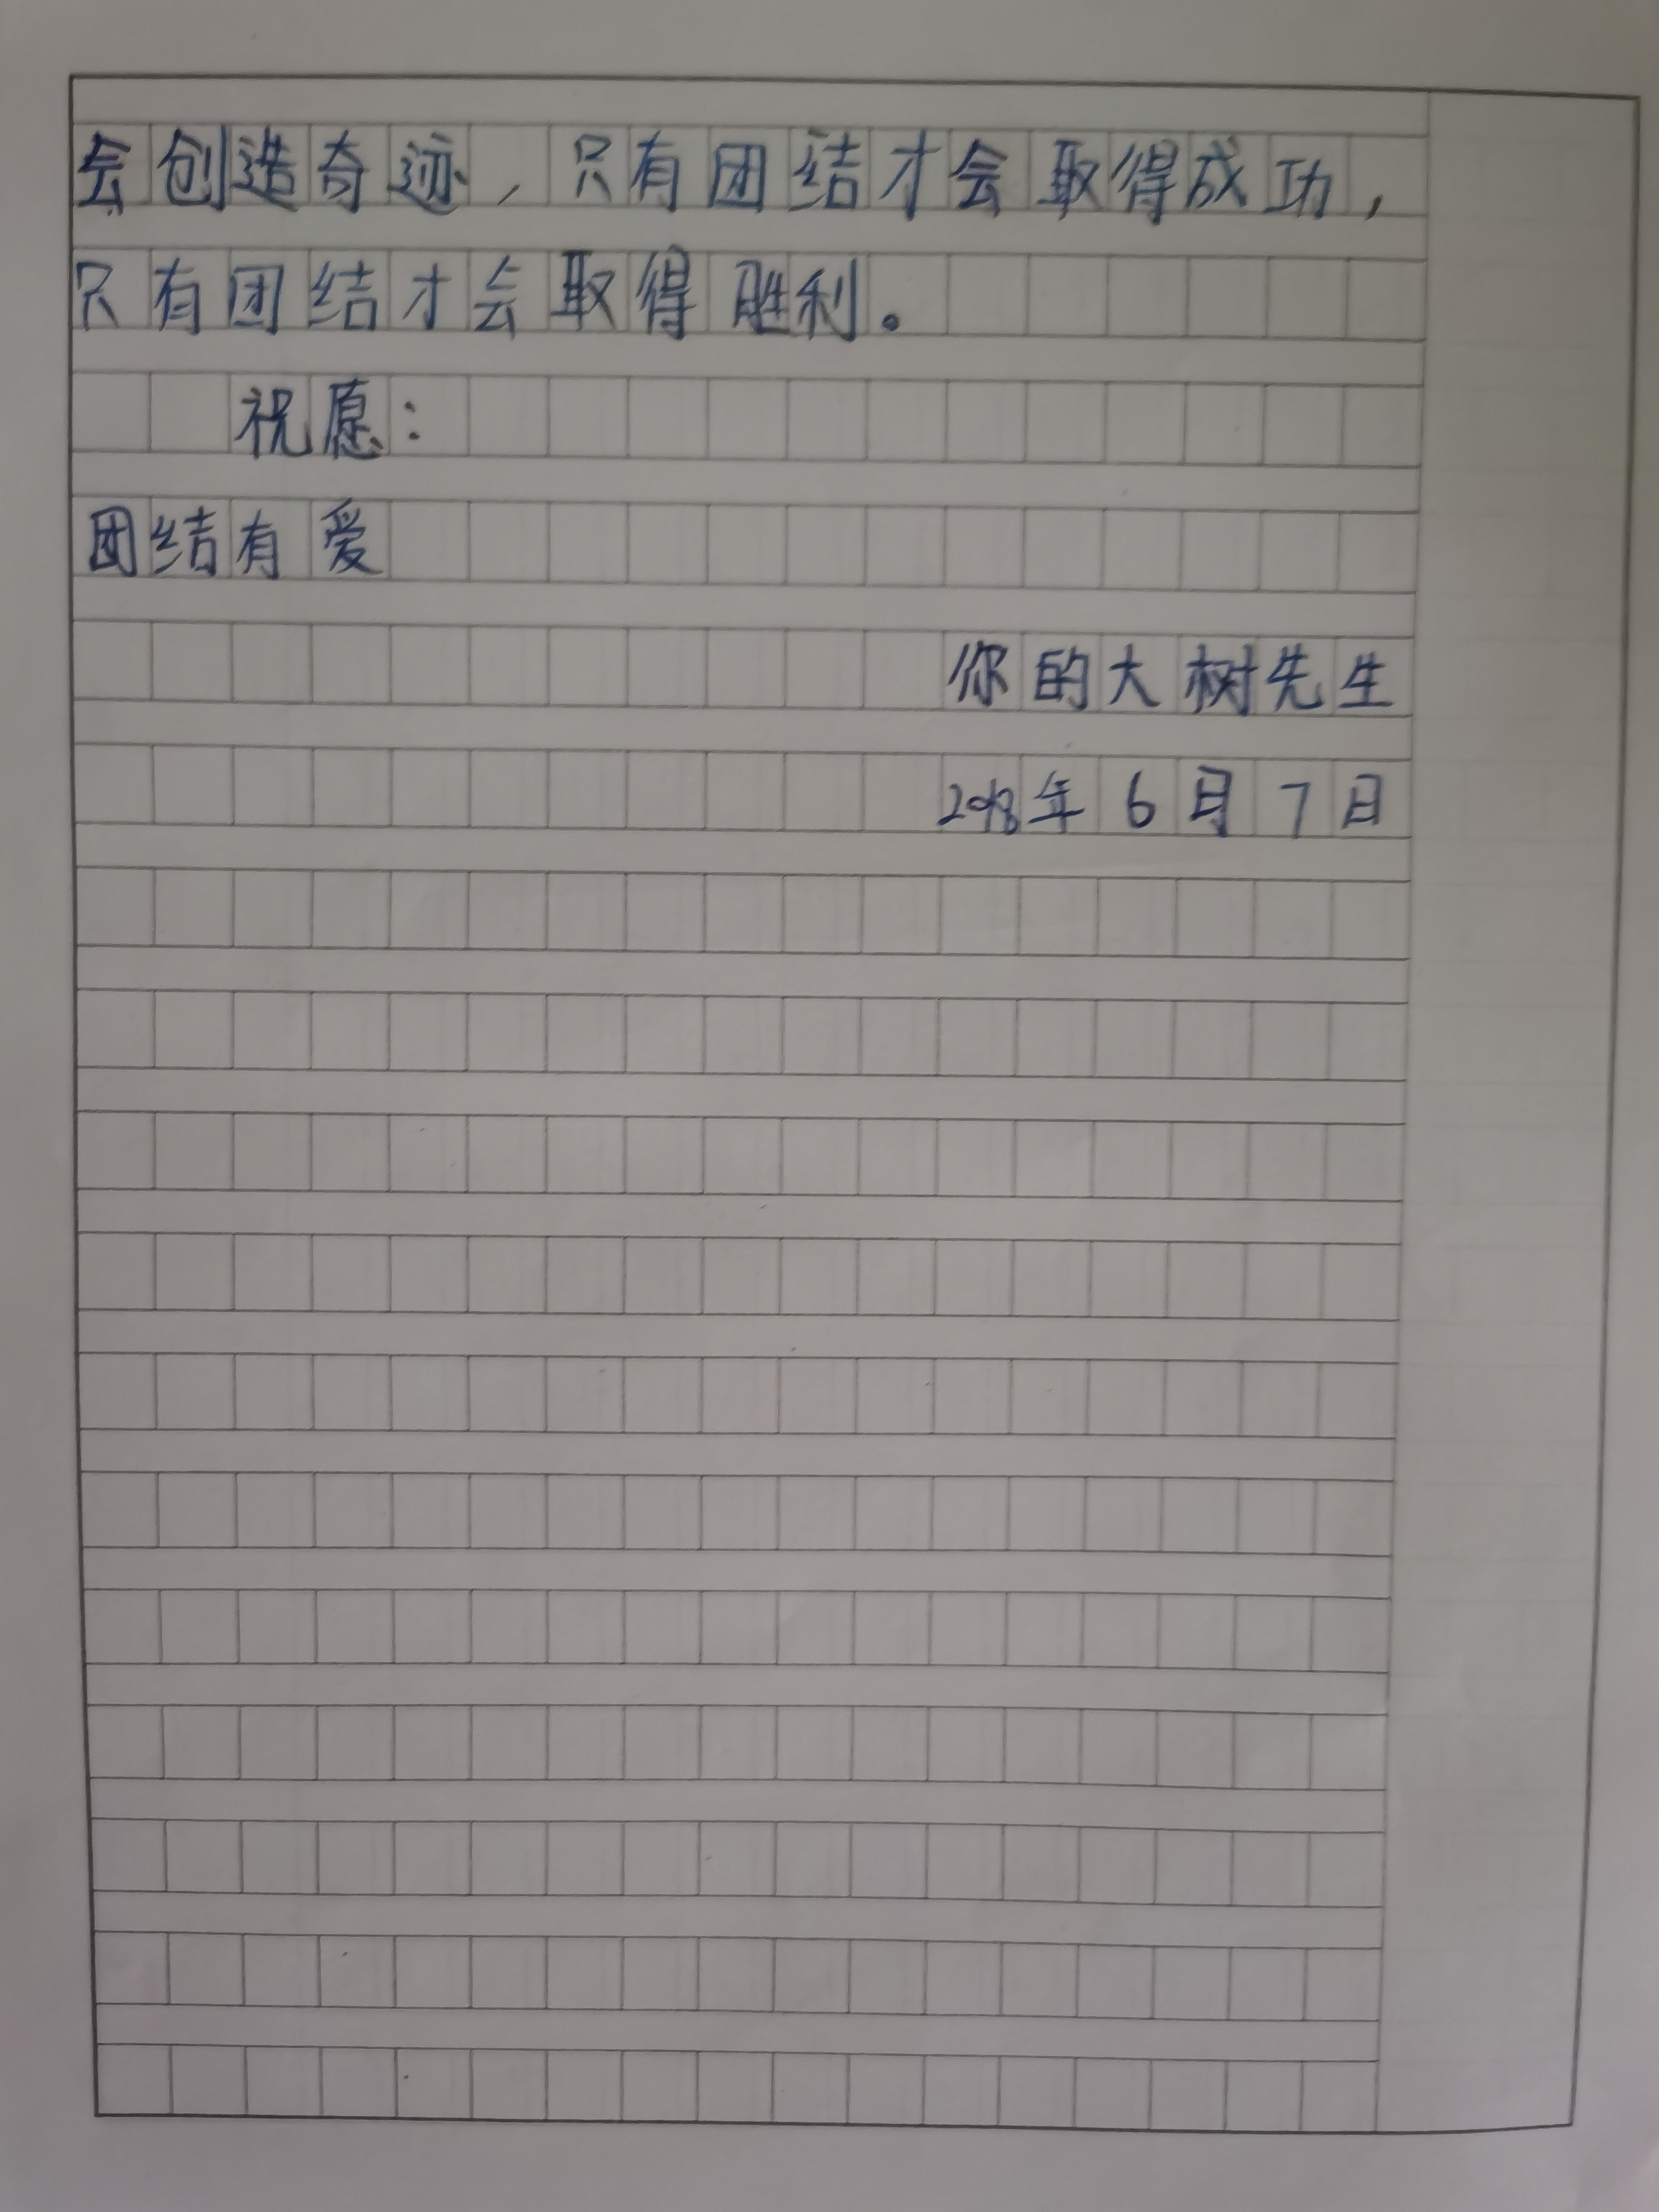 会创造奇迹，只有团结才会取得成功，
只有团结才会取得胜利。
祝愿：
团结有爱
你的大树先生
2018年6月7日